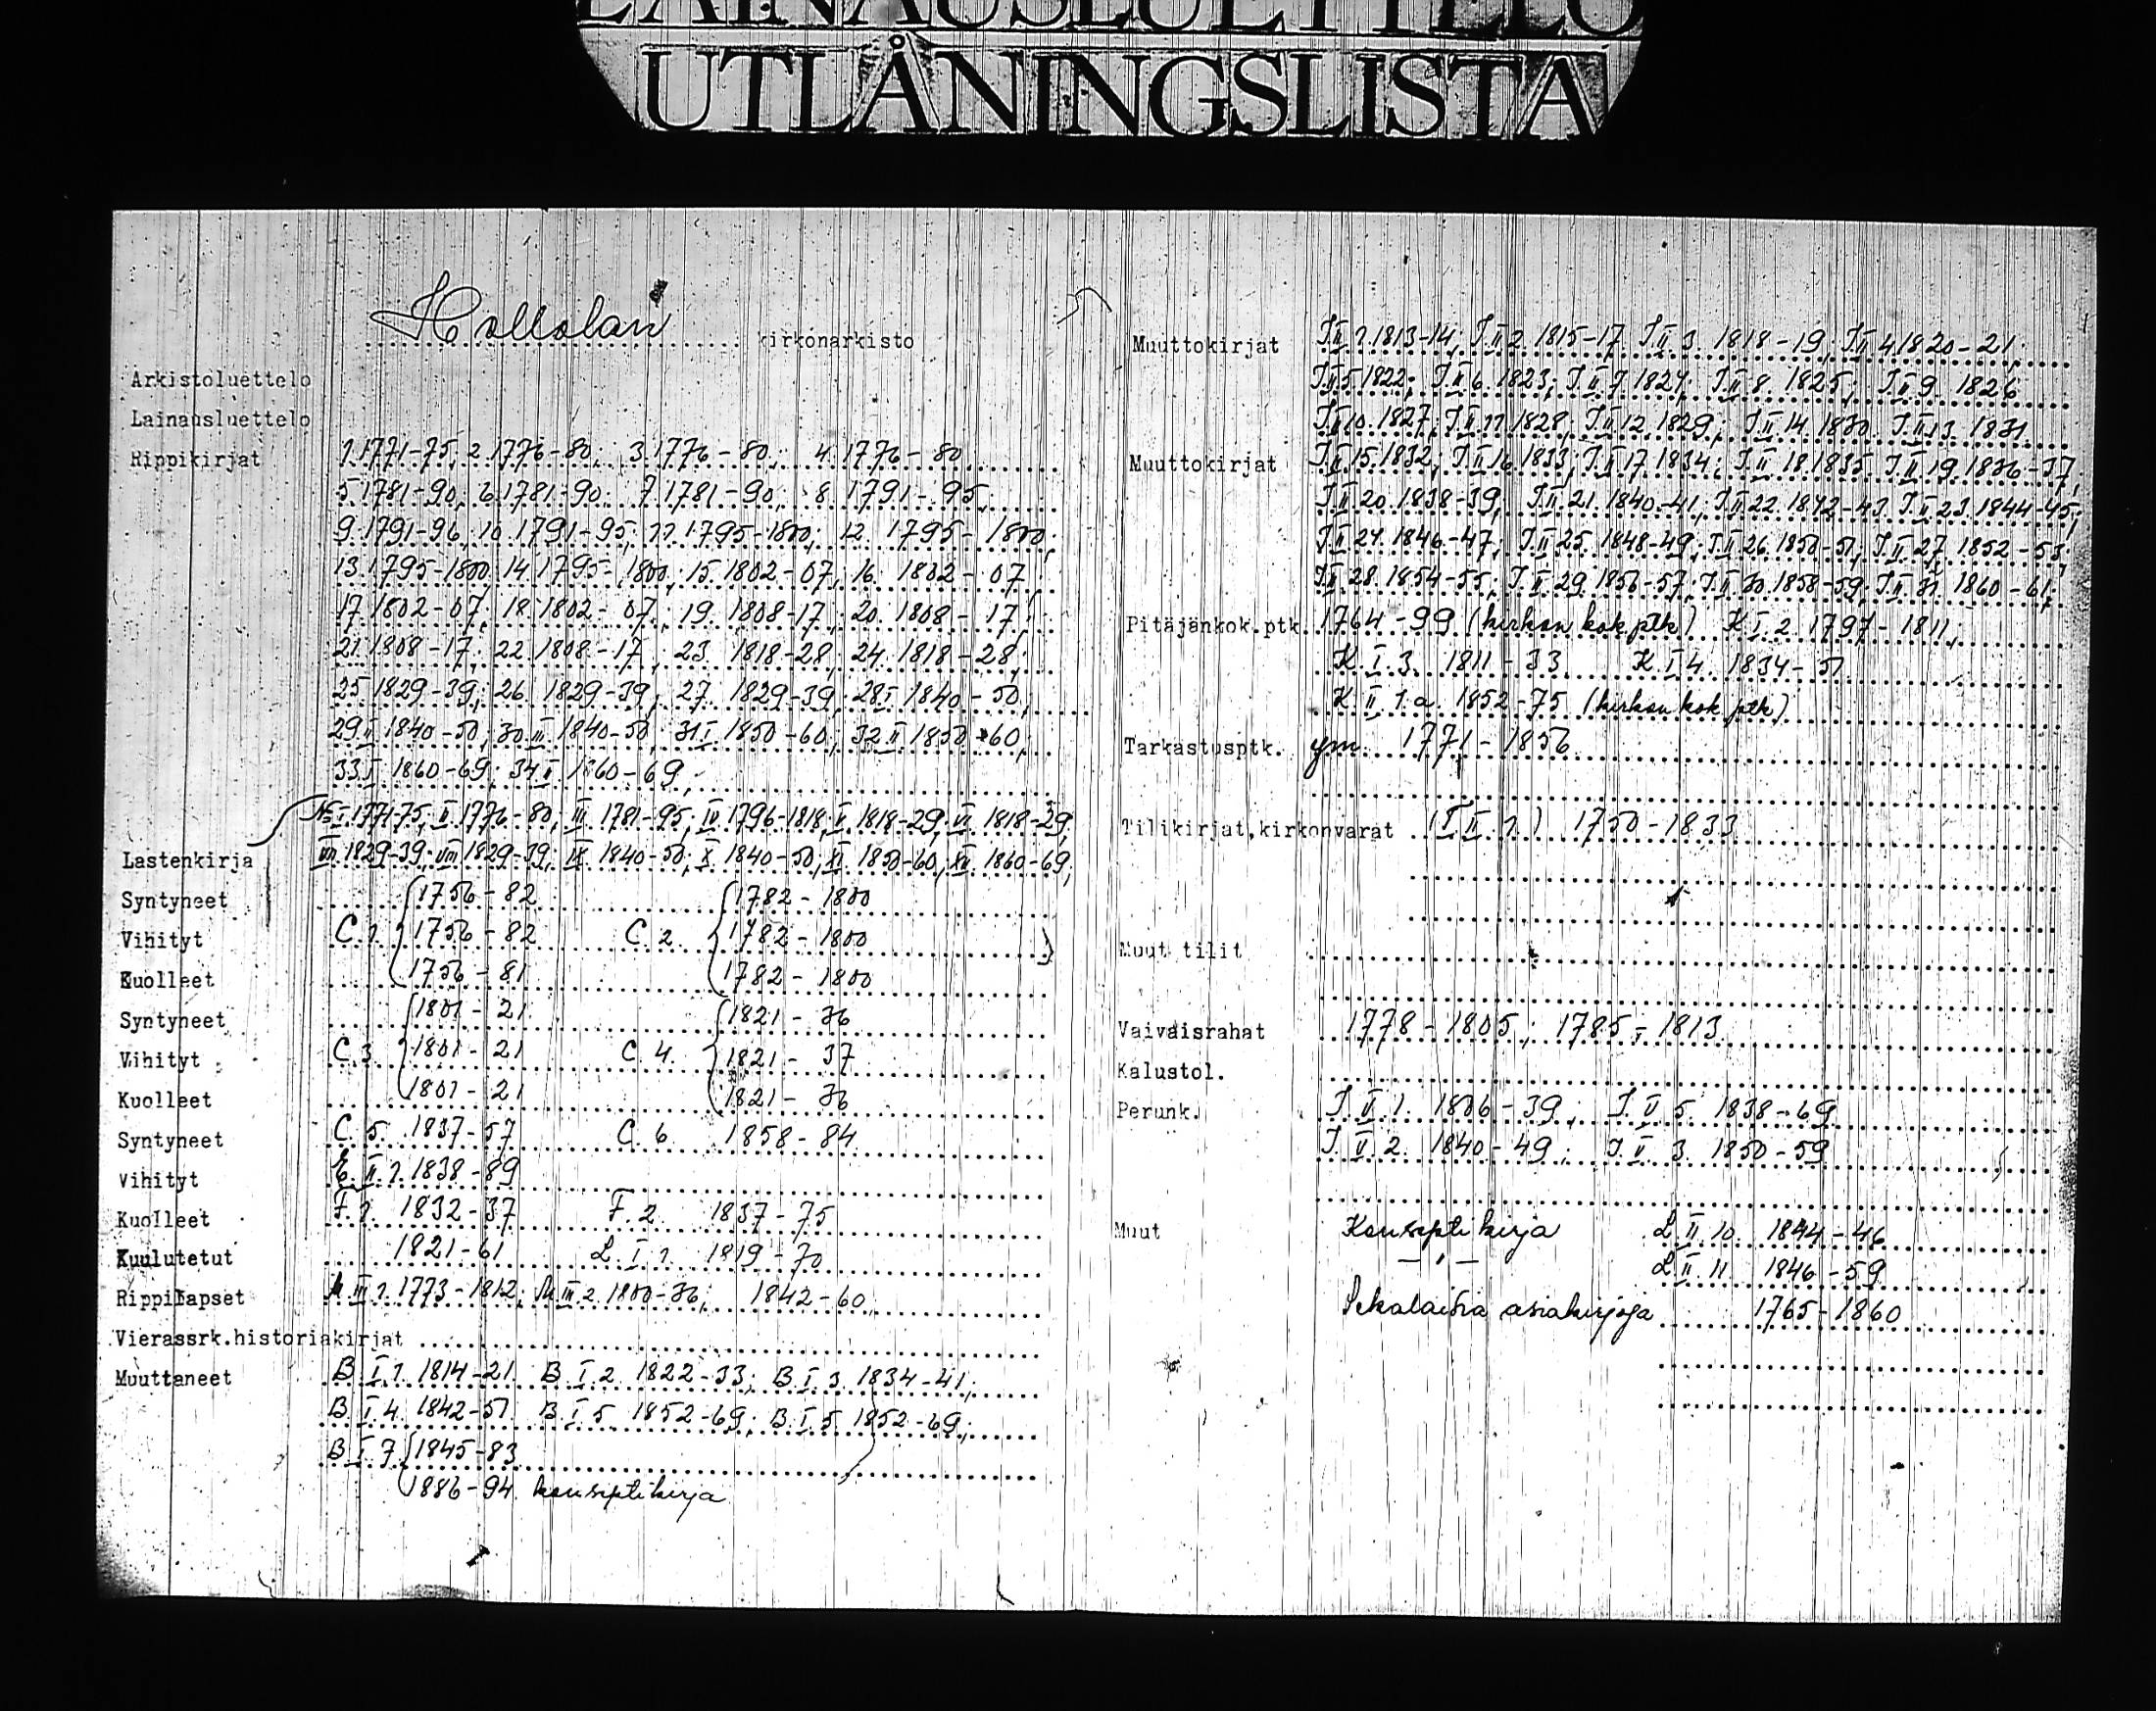 LAINAUSLUETTELO
UTLÅNINGSLISTA
Hollolan kirkonarkisto
Arkistoluettelo
Lainausluettelo
Rippikirjat 1.1771-75, 2.1776-80; 3.1776-80; 4.1776-80
5.1781-90, 6.1781-90; 7.1781-90; 8.1791-95,
9.1791-96, 10.1791-95; 11.1795-1800; 12.1795-1800;
13.1795-1800; 14.1795-1800; 15.1802-07, 16.1802-07;
17.1802-07, 18.1802-07; 19.1808-17; 20.1808-17;
21.1808-17; 22.1808-17; 23.1818-28; 24.1818-28;
25.1829-39; 26.1829-39; 27.1829-39; 28 I 1840-50;
29 II 1840-50; 30 III 1840-50; 31 I 1850-60; 32 II 1850-60;
33 I 1860-69; 34 II 1860-69;
No I 1771-75; II 1776-80; III 1781-95; IV 1796-1818, V 1818-29, VI 1818-29,
Lastenkirja VII 1829-39; VIII 1829-39; IX 1840-50; X 1840-50; XI 1850-60; XII 1860-69;
Syntyneet 1756-82 1782-1800
Vihityt C.1. 1756-82 C.2. 1782-1800
Kuolleet 1756-81 1782-1800
Syntyneet 1801-21 1821-36
Vihityt C.3. 1801-21 C.4. 1821-37
Kuolleet 1801-21 1821-36
Syntyneet C.5. 1837-57 C.6. 1858-84
Vihityt E.II.1. 1838-89
Kuolleet F.1. 1832-37 F.2. 1837-75
Kuulutetut 1821-61 L.I.1. 1819-70
Rippilapset M.III.1. 1773-1812; M.III.2. 1800-36; 1842-60
Vierassrk.historiakirjat
Muuttaneet B.I.1. 1814-21 B.I.2. 1822-33; B.I.3. 1834-41;
B.I.4. 1842-51 B.I.5. 1852-69; B.I.5. 1852-69;
B.I.7. 1845-83
1886-94 konseptikirja
Muuttokirjat I II 1. 1813-14; I II 2. 1815-17 I II 3. 1818-19, I II 4. 1820-21;
I II 5. 1822; I II 6. 1823; I II 7. 1824; I II 8. 1825; I II 9. 1826
I II 10. 1827; I II 11. 1828; I II 12. 1829; I II 14. 1830 I II 13. 1831
Muuttokirjat I II 15. 1832; I II 16. 1833; I II 17. 1834; I II 18. 1835 I II 19. 1836-37,
I II 20. 1838-39; I II 21. 1840-41, I II 22. 1842-43 I II 23. 1844-45,
I II 24. 1846-47; I II 25. 1848-49; I II 26. 1850-51; I II 27. 1852-53,
I II 28. 1854-55; I II 29. 1856-57; I II 30. 1858-59; I II 31. 1860-61,
Pitäjänkok.ptk. 1764-99 (kirkon kok ptk) K I. 2. 1797-1811;
K. I. 3. 1811-33 K. I 4. 1834-51
K II 1.a. 1852-75 (kirkon kok ptk)
Tarkastusptk. ym. 1771-1856
Tilikirjat,kirkonvarat (I II. 1.) 1750-1833
Muut tilit
Vaivaisrahat 1778-1805; 1785-1813
Kalustol.
Perunk. I. V. 1. 1806-39; I. V. 5. 1838-69
I. V. 2. 1840-49; I. V. 3. 1850-59
Muut Konseptikirja L II 10. 1844-46
— " — L II 11 1846-59
Sekalaisia asiakirjoja 1765-1860